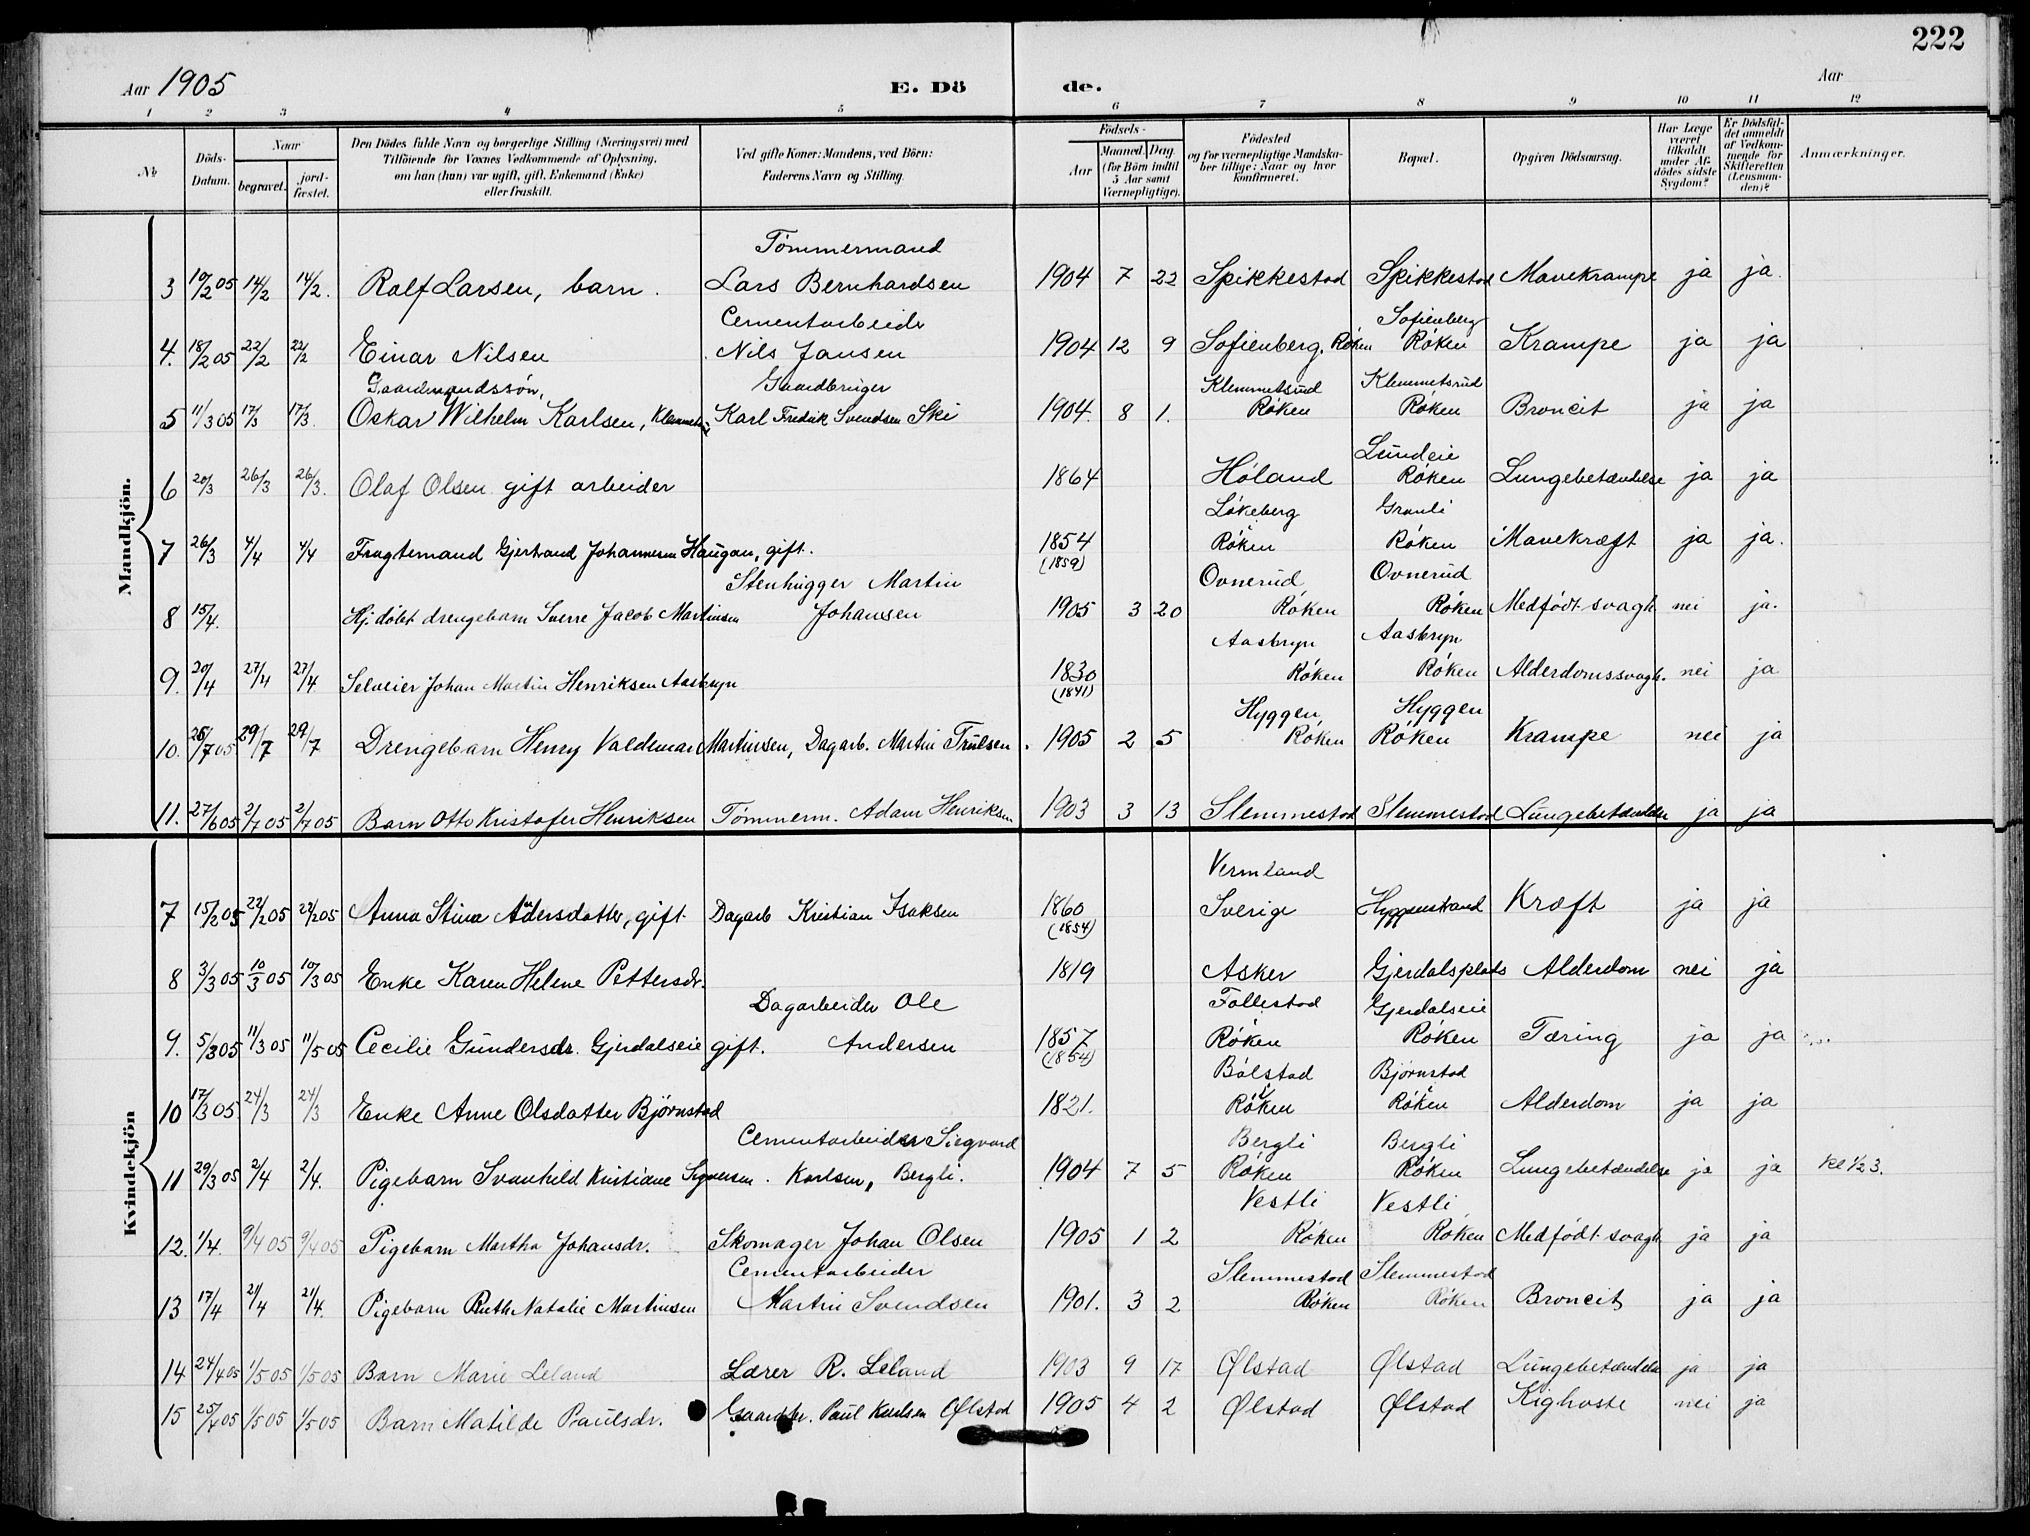 222
Aar 1905 E. Dö de. Aar
1 2 3 4 5 6 7 8 9 10 11 12
№
Döds-Datum.
Naar
begravet. jord-fæstet.
Den Dödes fulde Navn og borgerlige Stilling (Næringsvei) med
Tilföiende for Voxnes Vedkommende af Oplysning,
om han (hun) var ugift, gift, Enkemand (Enke)
eller fraskilt.
Ved gifte Koner: Mandens, ved Börn:
Faderens Navn og Stilling.
Födsels-
Aar Maaned. Dag
(for Börn indtil
5 Aar samt
Værnepligtige).
Födested
og for værnepligtige Mandska-
ber tillige: Naar og hvor
konfirmeret.
Bopæl.
Opgiven Dödsaarsag.
Har Læge
været
tilkaldt
under Af-
dödes sidste
Sygdom?
Er Dödsfal-
det anmeldt
af Vedkom-
mende for
Skifteretten
(Lensman-
den)?
Anmærkninger.
Mandkjön.
Tømmermand
3 10/2 05 14/2 14/2. Ralf Larsen, barn. Lars Bernhardsen 1904 7 22 Spikkestad Spikkestad Mavekrampe ja ja.
Cementarbeidr Sofienberg
4. 18/2 05 22/2 22/2 Einar Nilsen Nils Jansen 1904 12 9 Sofienberg, Røken Røken Krampe ja ja
Gaardmandssøn, Gaardbruger Klemmetsrud Klemmetsrud
5 11/3 05 17/3 17/3. Oskar Wilhelm Karlsen, Karl Fredrik Svendsen Ski 1904. 8 1. Røken Røken Broncit ja ja
Lundeie
6 20/3 26/3 26/3. Olaf Olsen gift arbeider 1864 Høland Røken Lungebetændelse ja ja
Løkeberg Granli
7 26/3 4/4 4/4 Fragtemand Gjertrand Johannesen Haugan, gift. 1854 Røken Røken Mavekræft ja ja.
(1859)
Stenhugger Martin Ovnerud Ovnerud
8 15/4. Hj. døbt drengebarn Sverre Jacob Martinsen Johansen 1905 3 20 Røken Røken Medfødt svagh. nei ja.
Aasbryn Aasbryn
9. 20/4 27/4 27/4 Selveier Johan Martin Henriksen Aasbryn 1830 Røken Røken Alderdomssvagh. nei ja
(1841)
Hyggen, Hyggen
10. 25/7 05 29/7 29/7 Drengebarn Henry Valdemar Martinsen, Dagarb. Martin Trulsen. 1905 2 5 Røken Røken Krampe nei ja
11. 27/6 05 2/7 05 2/7 05 Barn Otto Kristofer Henriksen Tømmerm. Adam Henriksen 1903 3 13 Slemmestad Slemmestad Lungebetændelse ja ja
Kvindekjön
Vermland
7 15/2 05 22/2 05 22/2 05 Anna Stina Adersdatter, gift Dagarb Kristian Isaksen 1860 Sverige Hyggenstrand Kræft ja ja
(1854)
8 3/3 05 10/3 05 10/3 05 Enke Karen Helene Pettersdr. 1819 Asker Gjerdalsplads Alderdom nei ja
Dagarbeider Ole Follestad Gjerdalseie
9. 5/3 05 11/3 05 11/5 05 Cecilie Gundersdr. Gjerdalseie gift. Andersen 1857 Røken Røken Tæring ja ja
(1854)
Bølstad Bjørnstad
10 17/3 05 24/3 24/3 Enke Anne Olsdatter Bjørnstad 1821. Røken Røken Alderdom ja ja
Cementarbeider Sigvard Bergli Bergli
11 29/3 05 2/4 2/4. Pigebarn Svanhild Kristiane Sigversen. Karlsen, Bergli. 1904 7 5 Røken Røken Lungebetændelse ja ja Kl ½ 3.
Vestli Vestli
12. 1/4. 9/4 05 9/4 05 Pigebarn Martha Johansdr. Skomager Johan Olsen 1905 1 2 Røken Røken Medfødt svagh ja ja
Cementarbeider Slemmestad Slemmestad
13 17/4 21/4 21/4. Pigebarn Ruth Natalie Martinsen Martin Svendsen 1901. 3 2 Røken Røken Broncit ja ja
14 24/4 05 1/5 05 1/5 05 Barn Marie Leland Lærer R. Leland 1903 9 17 Ølstad Ølstad Lungebetændelse ja ja
15 25/4 05 1/5 05 1/5 05 Barn Matilde Paulsdr. Gaardbr. Paul Karlsen Ølstad 1905 4 2 Ølstad Ølstad Kighoste nei ja